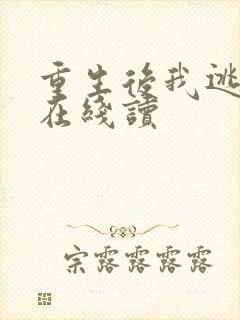 重生後我逃
在綫讀
宗露露露露